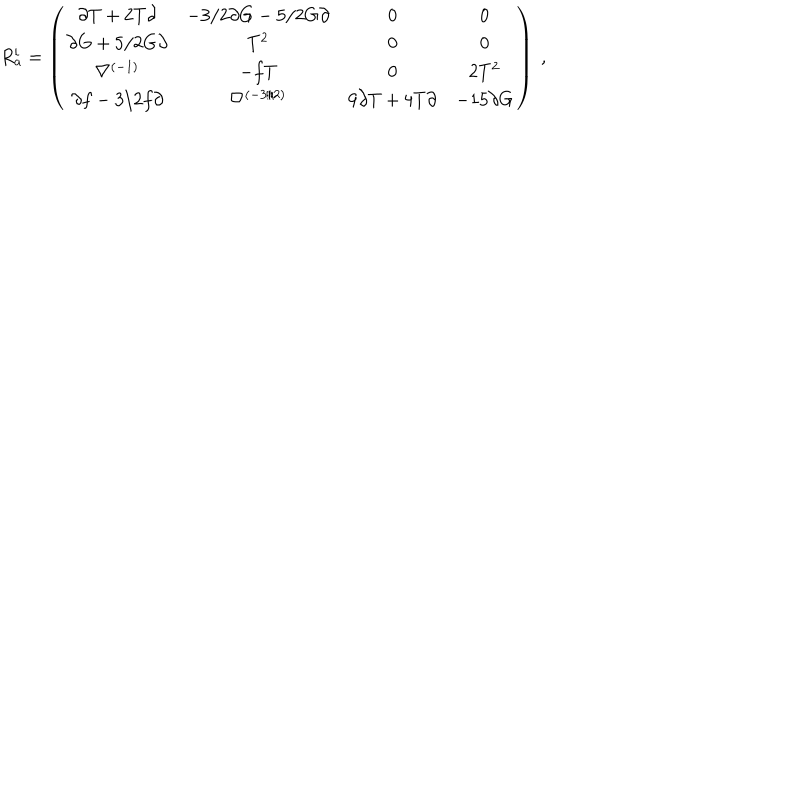 R_a^i = \left( \begin{array}{cccc} \partial T + 2T\partial & -3/2\partial G - 5/2G\partial & 0 & 0 \\ \partial G + 5/2G\partial & T^2 & 0 & 0 \\ \nabla^{(-1)} & -fT & 0 & 2T^2 \\ \partial f - 3/2f\partial & \nabla^{(-3/2)} & 9\partial T + 4T\partial & -15\partial G \end{array} \right) ,